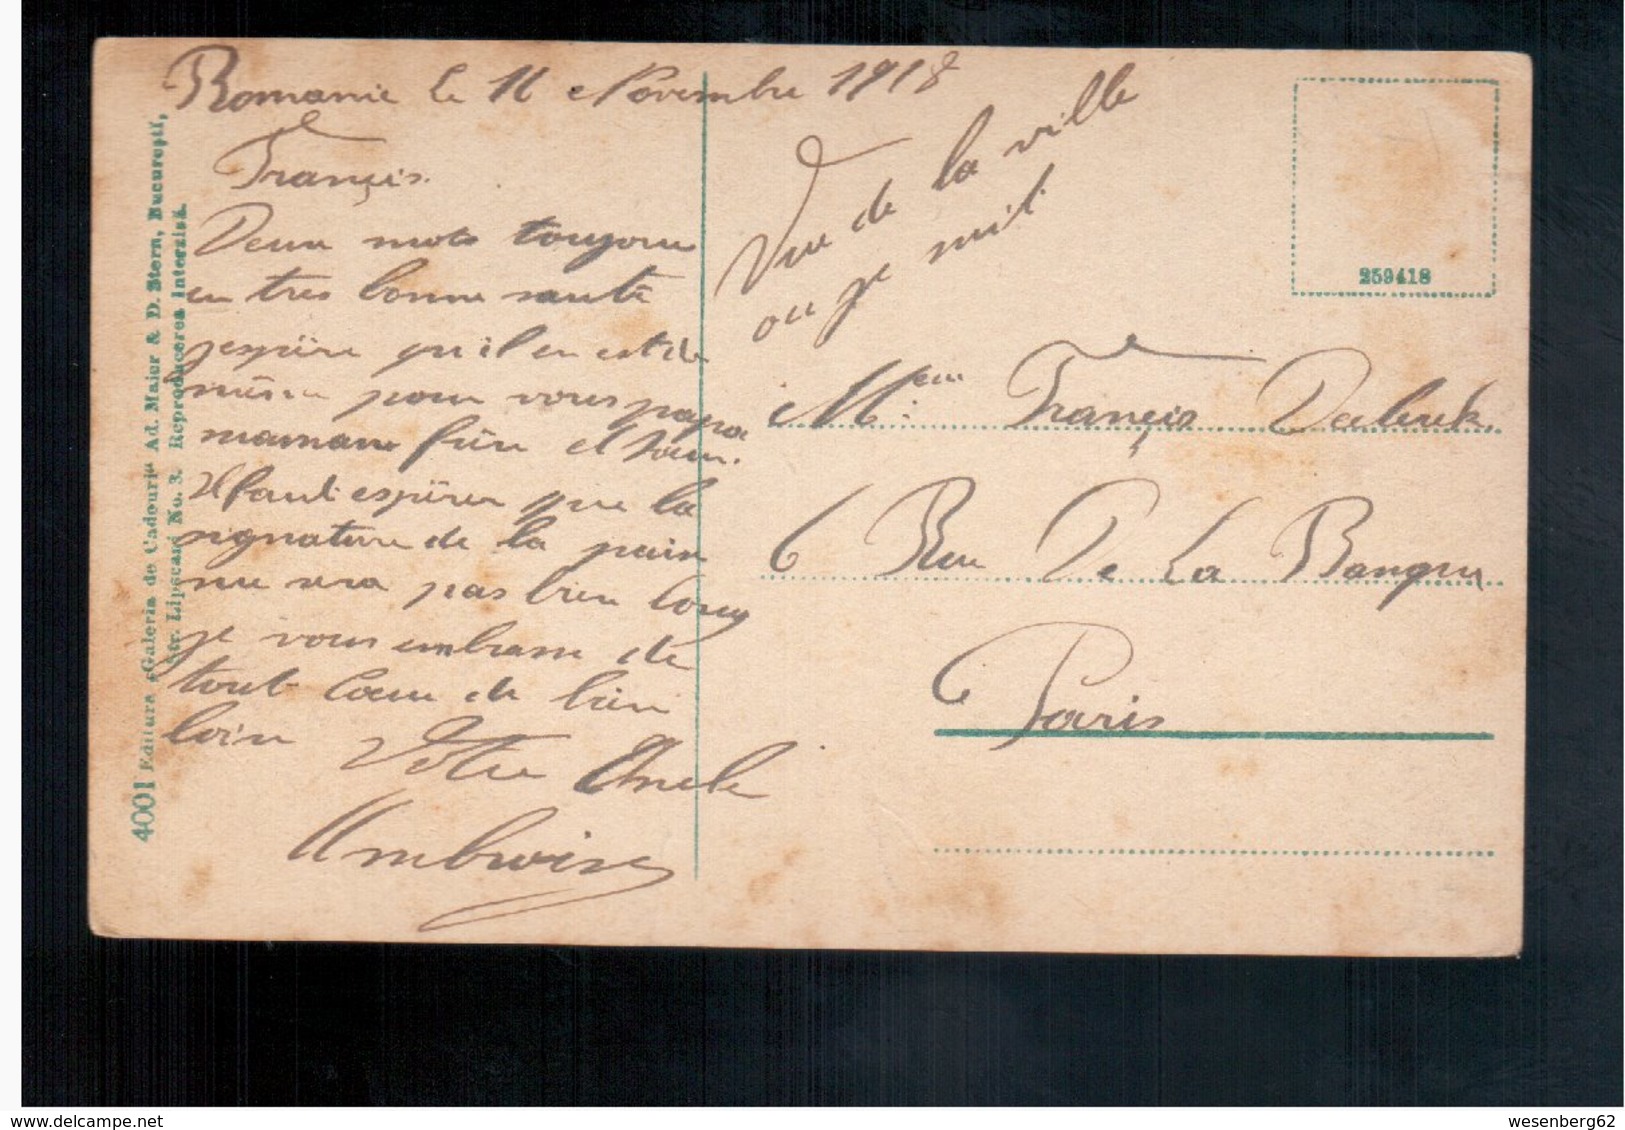 Romanie le 11 Novembre 1918
Françis.
Deux mots toujours
en tres bonne santé
jespère qu'il en est de
même pour vous papa
maman frère et sœur.
Il faut espérer que la
signature de la paix
ne sera pas bien long
je vous embrasse de
tout Cœur de bien
loin Votre Oncle
Ambroise
Vue de la ville
ou je suis
M:eur Françis
6 Rue De La Banque
Paris
259418
4001 Editura „Galeria de Cadouri" Ad. Maier & D. Stern, Bucureşti,
Str. Lipscani No. 3. Reproducerea interzisă.
wesenberg62
www.delcampe.net